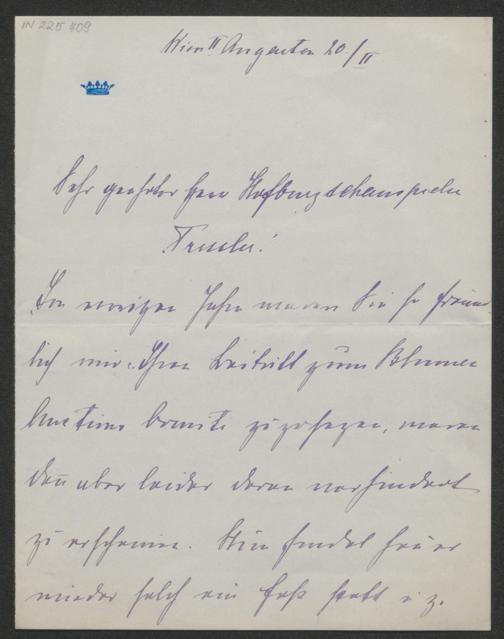 IN 225.409
Wien II Augarten 20./II
Sehr geehrter Herr Hofburgschauspieler
Tressler!
Im vorigen Jahre waren Sie so freund-
lich mir Ihren Beitritt zum Blumen
Auctions comité zuzusagen, waren
dañ aber leider daran verhindert
zu erscheinen. Nun findet heuer
wieder solch ein Fest statt u. z.